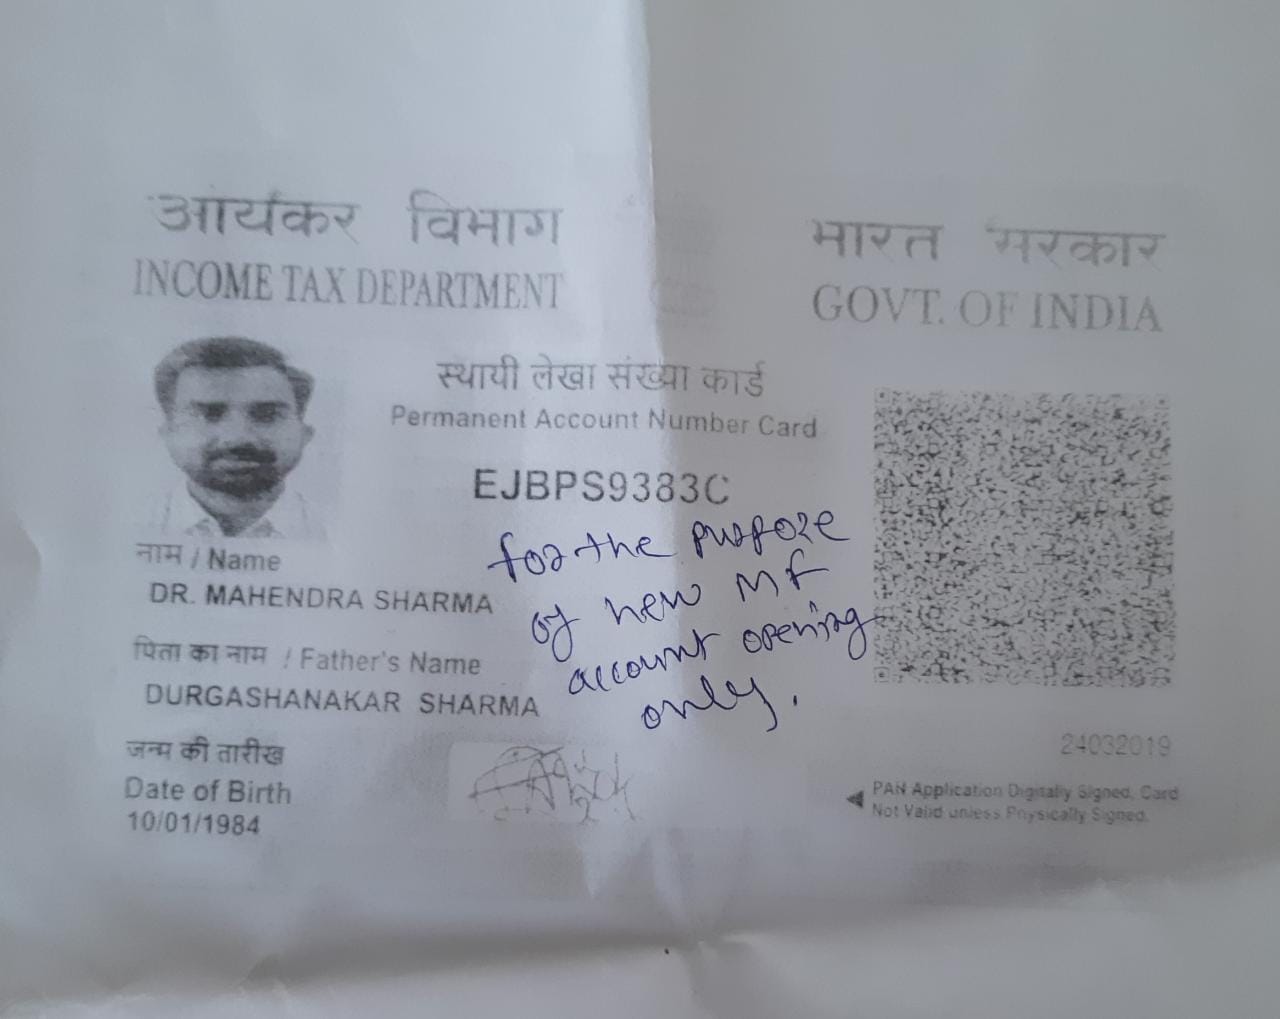 आयकर विभाग
INCOME TAX DEPARTMENT
भारत सरकार
GOVT. OF INDIA
स्थायी लेखा संख्या कार्ड
Permanent Account Number Card
EJBPS9383C
for the purpose
of new MF
account opening
only.
नाम / Name
DR. MAHENDRA SHARMA
पिता का नाम / Father's Name
DURGASHANAKAR SHARMA
जन्म की तारीख
Date of Birth
10/01/1984
24032019
PAN Application Digitally Signed, Card
Not Valid unless Physically Signed.